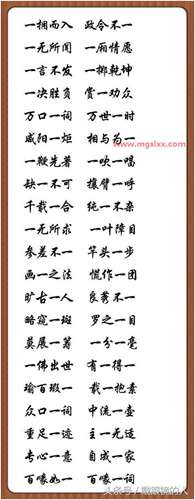 一拥而入 政令不一
一无所闻 一厢情愿
一言不发 一掷乾坤
一决胜负 赏一劝众
万口一词 万世一时
www.mgslxx.com
咸阳一炬 相与为一
一鞭先著 一吹一唱
缺一不可 攘臂一呼
千载一合 纯一不杂
一无所求 一叶障目
参差不一 竿头一步
画一之法 慌作一团
旷古一人 良莠不一
暗窥一斑 罗之一目
莫展一筹 一分一毫
一佛出世 有一得一
瑜百瑕一 载一抱素
众口一词 中流一壶
重足一迹 主一无适
专心一意 自成一家
百喙如一 百喙一词